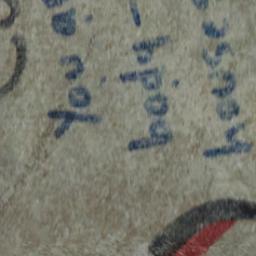 You
body
house